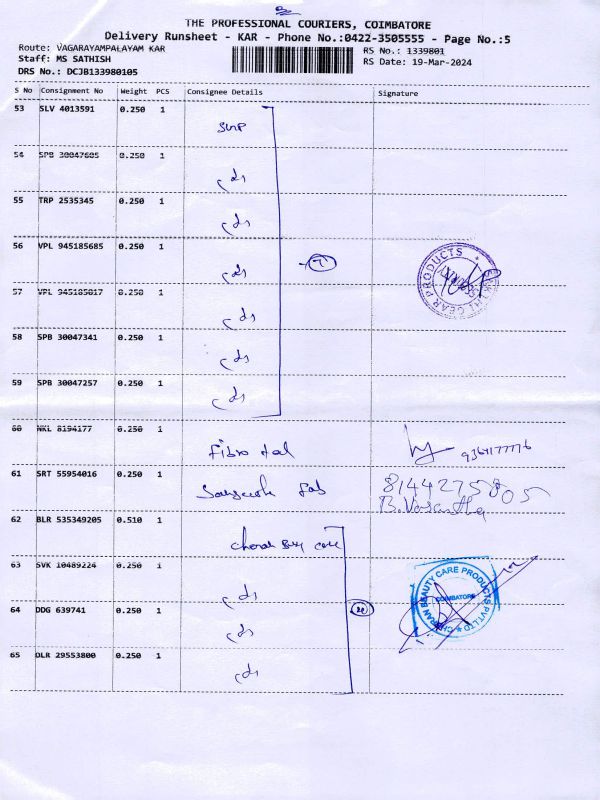 THE PROFESSIONAL COURIERS, COIMBATORE
Delivery Runsheet - KAR - Phone No.:0422-3505555 - Page No.:5
Route: VAGARAYAMPALAYAM KAR
RS No.: 1339801
Staff: MS SATHISH
RS Date: 19-Mar-2024
DRS No.: DCJB133980105
S No Consignment No Weight PCS Consignee Details Signature
53 SLV 4013591 0.250 1
54 SPB 30047605 0.250 1
55 TRP 2535345 0.250 1
56 VPL 945185685 0.250 1
57 VPL 945185817 0.250 1
58 SPB 30047341 0.250 1
59 SPB 30047257 0.250 1
GEAR PRODUCTS
60 NKL 8194177 0.250 1
61 SRT 55954016 0.250 1
8144275805
B. Vasantha
62 BLR 535349205 0.510 1
63 SVK 10489224 0.250 1
64 DDG 639741 0.250 1
65 DLR 29553800 0.250 1
CHERAN BEAUTY CARE PRODUCTS PVT LTD
COIMBATORE